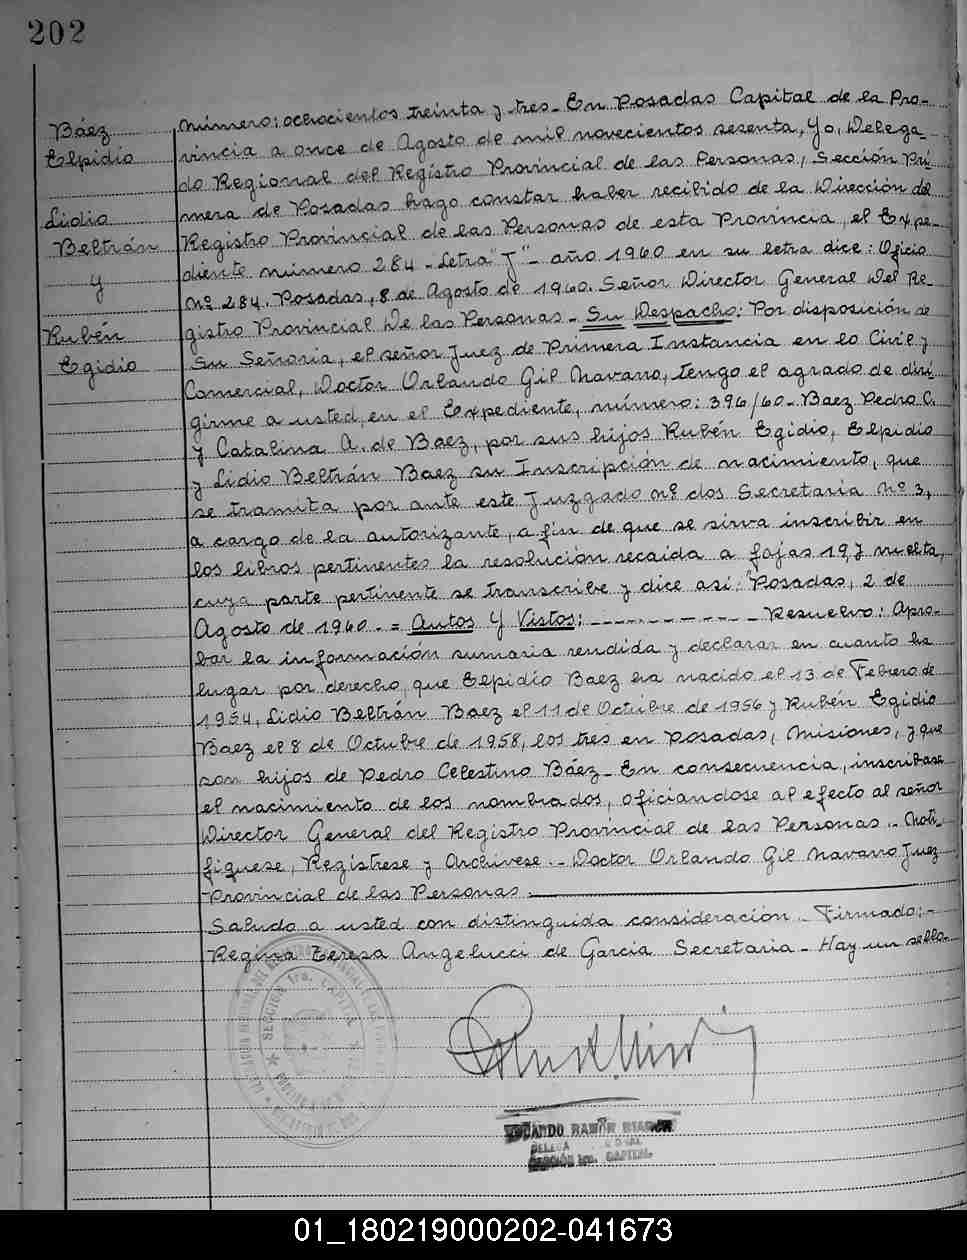 202
Báez
Elpidio
Lidio
Beltrán
y
Rubén
Egidio
Número: ochocientos treinta y tres - En Posadas Capital de la Pro-
vincia a once de Agosto de mil novecientos sesenta, Yo, Delega-
do Regional del Registro Provincial de las Personas, Sección Pri-
mera de Posadas hago constar haber recibido de la Dirección del
Registro Provincial de las Personas de esta Provincia, el Expe-
diente número 284 - Letra "J" - año 1960 en su letra dice: Oficio
Nº 284. Posadas, 8 de Agosto de 1960. Señor Director General Del Re-
gistro Provincial De las Personas - Su Despacho: Por disposición de
Su Señoria, el señor Juez de Primera Instancia en lo Civil y
Comercial, Doctor Orlando Gil Navarro, tengo el agrado de diri-
girme a usted, en el Expediente, número: 396/60 - Baez Pedro C.
y Catalina A. de Baez, por sus hijos Rubén Egidio, Elpidio
y Lidio Beltrán Baez su Inscripción de nacimiento, que
se tramita por ante este Juzgado nº dos Secretaria Nº 3,
a cargo de la autorizante, a fin de que se sirva inscribir en
los libros pertinentes la resolución recaida a fojas 19, y vuelta,
cuya parte pertinente se transcribe y dice asi: "Posadas, 2 de
Agosto de 1960 - = Autos Y Vistos: - - - - - - - - - - Resuelvo: Apro-
bar la información sumaria rendida y declarar en cuanto ha
lugar por derecho, que Elpidio Baez ha nacido el 13 de Febrero de
1954, Lidio Beltrán Baez el 11 de Octubre de 1956 y Rubén Egidio
Baez el 8 de Octubre de 1958, los tres en Posadas, Misiones, y que
son hijos de Pedro Celestino Báez - En consecuencia, inscribase
el nacimiento de los nombrados, oficiandose al efecto al señor
Director General del Registro Provincial de las Personas. - Noti-
fiquese, Regístrese y Archivese. - Doctor Orlando Gil Navarro Juez
Provincial de las Personas.
Saludo a usted con distinguida consideración - Firmado: -
Regina Teresa Angelucci de Garcia Secretaria - Hay un sello.
SECCION 1ra. CAPITAL
RAMON
SECCIÓN 1ra. CAPITAL
01_180219000202-041673